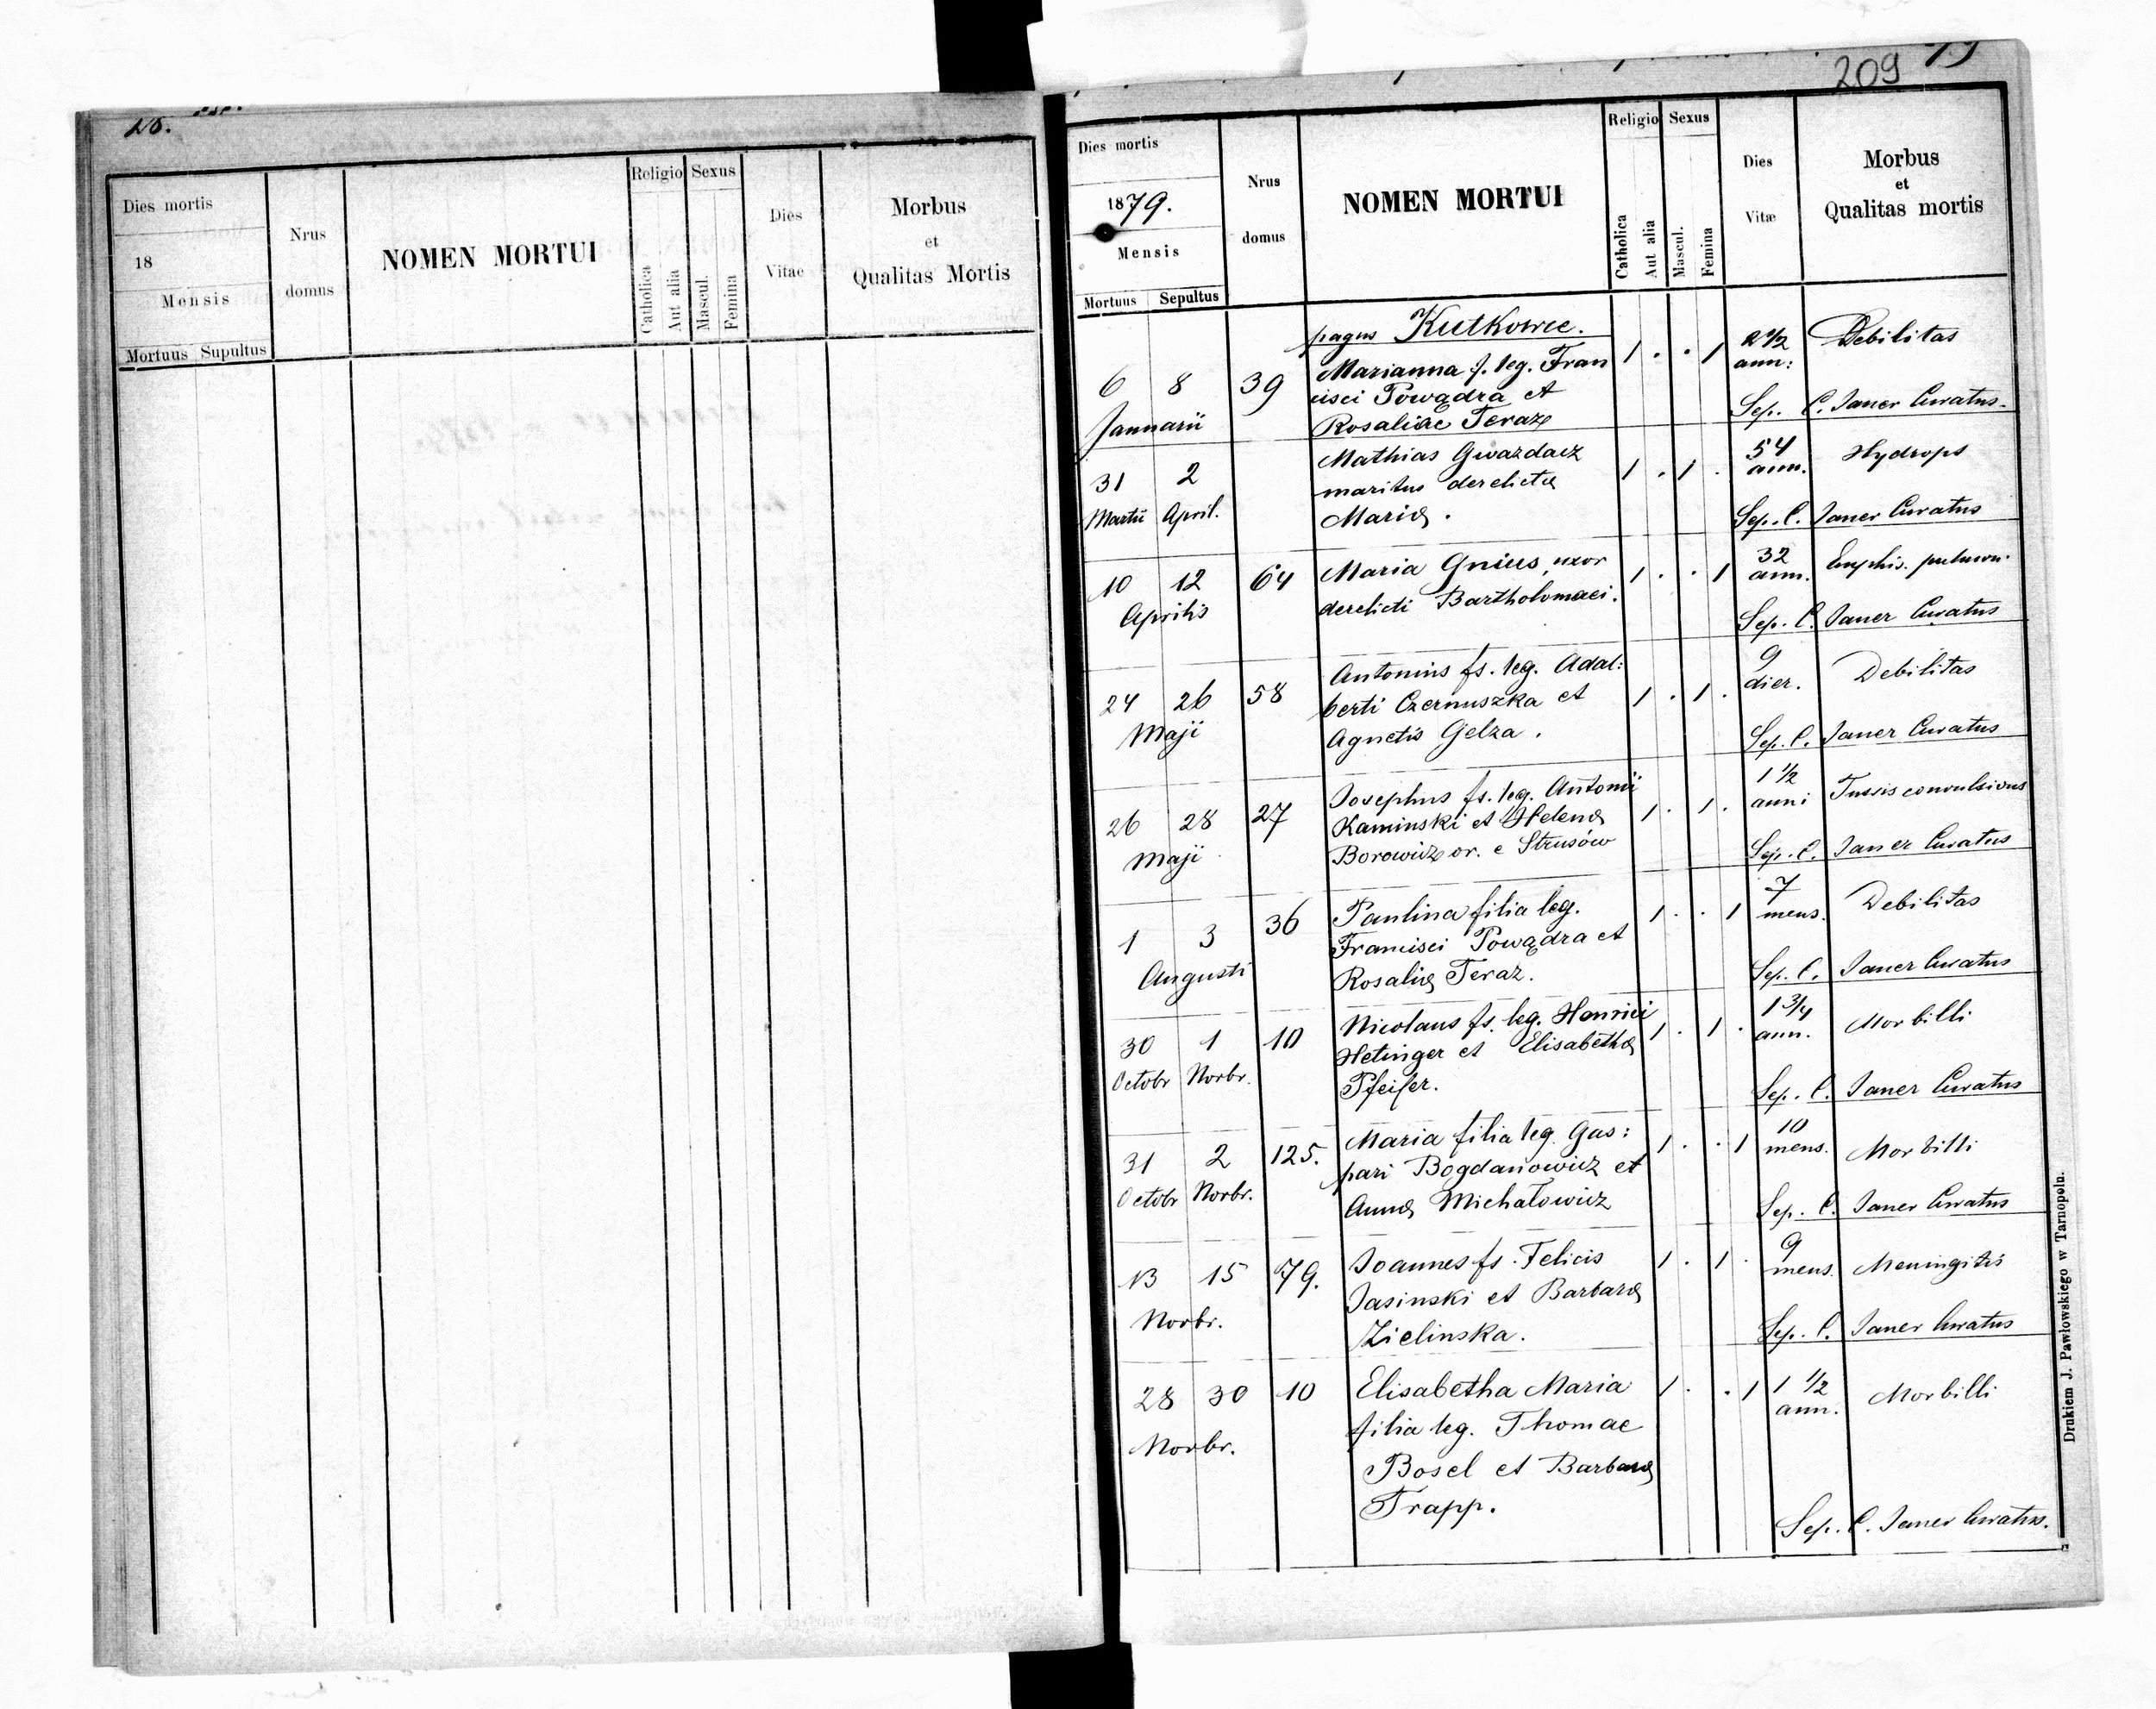 26.
Dies mortis
18
Mensis
Mortuus Supultus
Nrus
domus
NOMEN MORTUI
Religio
Catholica
Aut alia
Sexus
Mascul.
Femina
Dies
Vitae
Morbus
et
Qualitas Mortis
209
79
Dies mortis
1879.
Mensis
Mortuus Sepultus
Nrus
domus
NOMEN MORTUI
Religio
Catholica
Aut alia
Sexus
Mascul.
Femina
Dies
Vitæ
Morbus
et
Qualitas mortis
pagus Kutkowce.
6 8 39 Marianna f. leg. Fran 1 . . 1 2 1/2 ann: Debilitas
cisci Powądra et
Januarii Rosaliae Teraz Sep. C. Janer Curatus.
31 2 Mathias Gwazdacz 1 . 1 . 54 ann. Hydrops
maritus derelictæ
Martii April. Mariæ. Sep. C. Janer Curatus
10 12 64 Maria Gnius uxor 1 . . 1 32 ann. Emphis. pulmon.
Aprilis derelicti Bartholomaei. Sep. C. Janer Curatus
24 26 58 Antonius fs. leg. Adal: 1 . 1 . 9 dier. Debilitas
berti Czernuszka et
Maji Agnetis Gelza. Sep. C. Janer Curatus
26 28 27 Josephus fs. leg. Antonii 1 . 1 . 1 1/2 anni Tussis convulsivus
Kaminski et Helenæ
Maji Borowicz or. e Strusów Sep. C. Janer Curatus
1 3 36 Paulina filia leg. 1 . . 1 7 mens. Debilitas
Francisci Powądra et
Augusti Rosaliæ Teraz. Sep. C. Janer Curatus
30 1 10 Nicolaus fs. leg. Henrici 1 . 1 . 1 3/4 ann. Morbilli
Hetinger et Elisabethæ
Octobr Novbr. Pfeifer. Sep. C. Janer Curatus
31 2 125. Maria filia leg. Gas: 1 . . 1 10 mens. Morbilli
pari Bogdanowicz et
Octobr Novbr. Annæ Michałowicz Sep. C. Janer Curatus
13 15 79. Joannes fs. Felicis 1 . 1 . 9 mens. Meningitis
Jasinski et Barbaræ
Novbr. Zielinska. Sep. C. Janer Curatus
28 30 10 Elisabetha Maria 1 . . 1 1 1/2 ann. Morbilli
Novbr. filia leg. Thomae
Bosel et Barbaræ
Trapp.
Sep. C. Janer Curatus.
Drukiem J. Pawłowskiego w Tarnopolu.